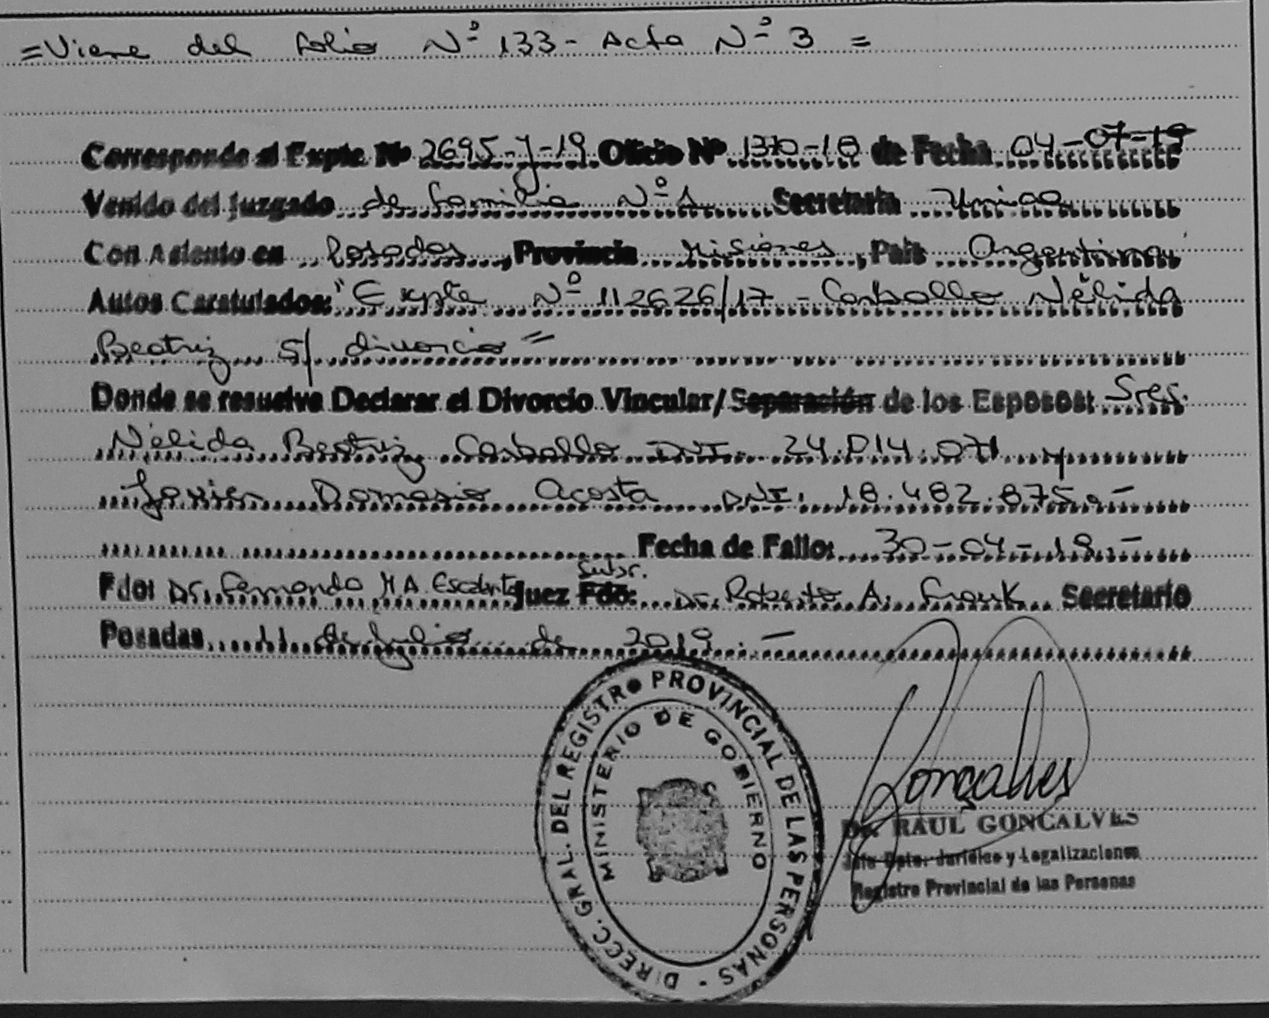 =Viene del folio Nº 133- Acta Nº 3 =
Corresponde al Expte Nº 2695-J-19. Oficio Nº de Fecha 04-07-19
Venido del Juzgado de familia Nº 1 Secretaria Unica
Con Asiento en Posadas, Provincia Misiones, País Argentina
Autos Caratulados: "Expte Nº 112626/17 - Carballo Nélida
Beatriz s/ divorcio"
Donde se resuelve Declarar el Divorcio Vincular/Separación de los Esposos: Sres.
Nélida Beatriz Carballo DNI. 24.014.071 y
Javier Damasio Acosta DNI. 18.482.875.-
Fecha de Fallo: 30-04-19.-
Subr.
Fdo: Dr. Fernando M A. Escalante Juez Fdo: Dr. Roberto A. Frank Secretario
Posadas 11 de Julio de 2019.-
DIRECC. GRAL. DEL REGISTRO PROVINCIAL DE LAS PERSONAS -
MINISTERIO DE GOBIERNO
Gonçalves
Dr. RAUL GONCALVES
Jefe Dpto. Jurídico y Legalizaciones
Registro Provincial de las Personas